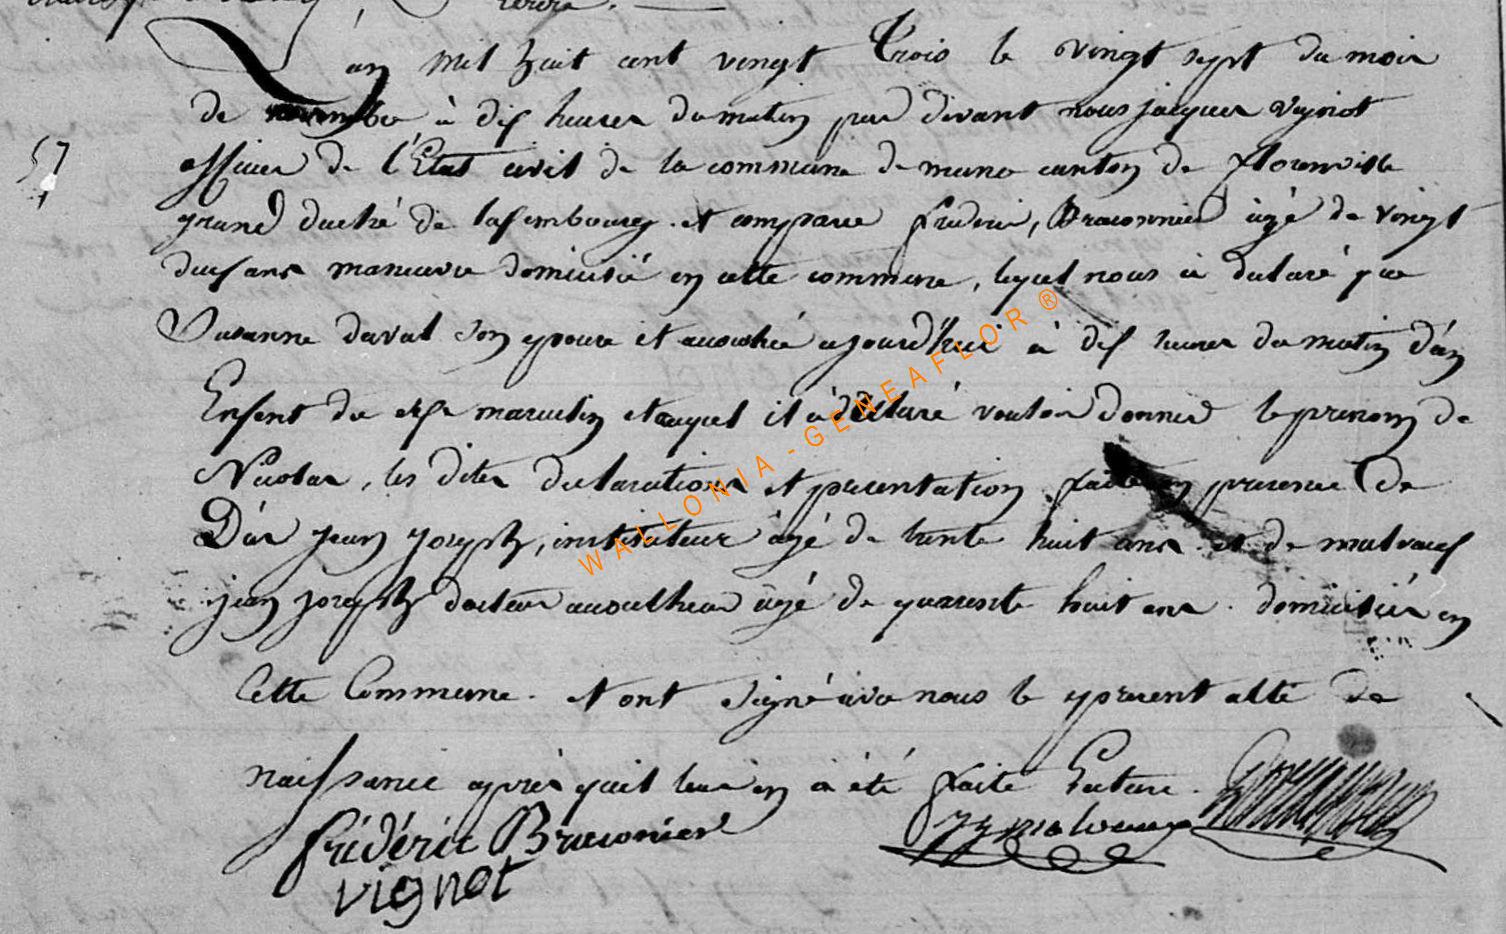 L'an mil huit cent vingt Trois le vingt sept du mois
de novembre à dix heures du matin par devant nous jacques vignot
officier de l'Etat civil de la commune de muno canton de florenville
grand duché de luxembourg et comparu frideric, Braconnier âgé de vingt
deux ans manuvre domicilié en cette commune, lequel nous à déclaré que
Susanne daval son epouse et accouchée ajourd'hui à dix heures du matin d'un
Enfent du sexe masculin et auquel il à déclaré vouloir donner le prenom de
Nicolas, les dites declarations et presentation faite en presence de
Jean joseph, instituteur âgé de trente huit ans et de malvaux
jean joseph docteur accoucheur âgé de quarente huit ans. domiciliés en
Cette Commune. et ont signé avec nous le present acte de
naissance après quil leur en à été faite lecture.
57
frédéric Braconier
vignot
jj malvaux
WALLONIA - GENEAFLOR ®